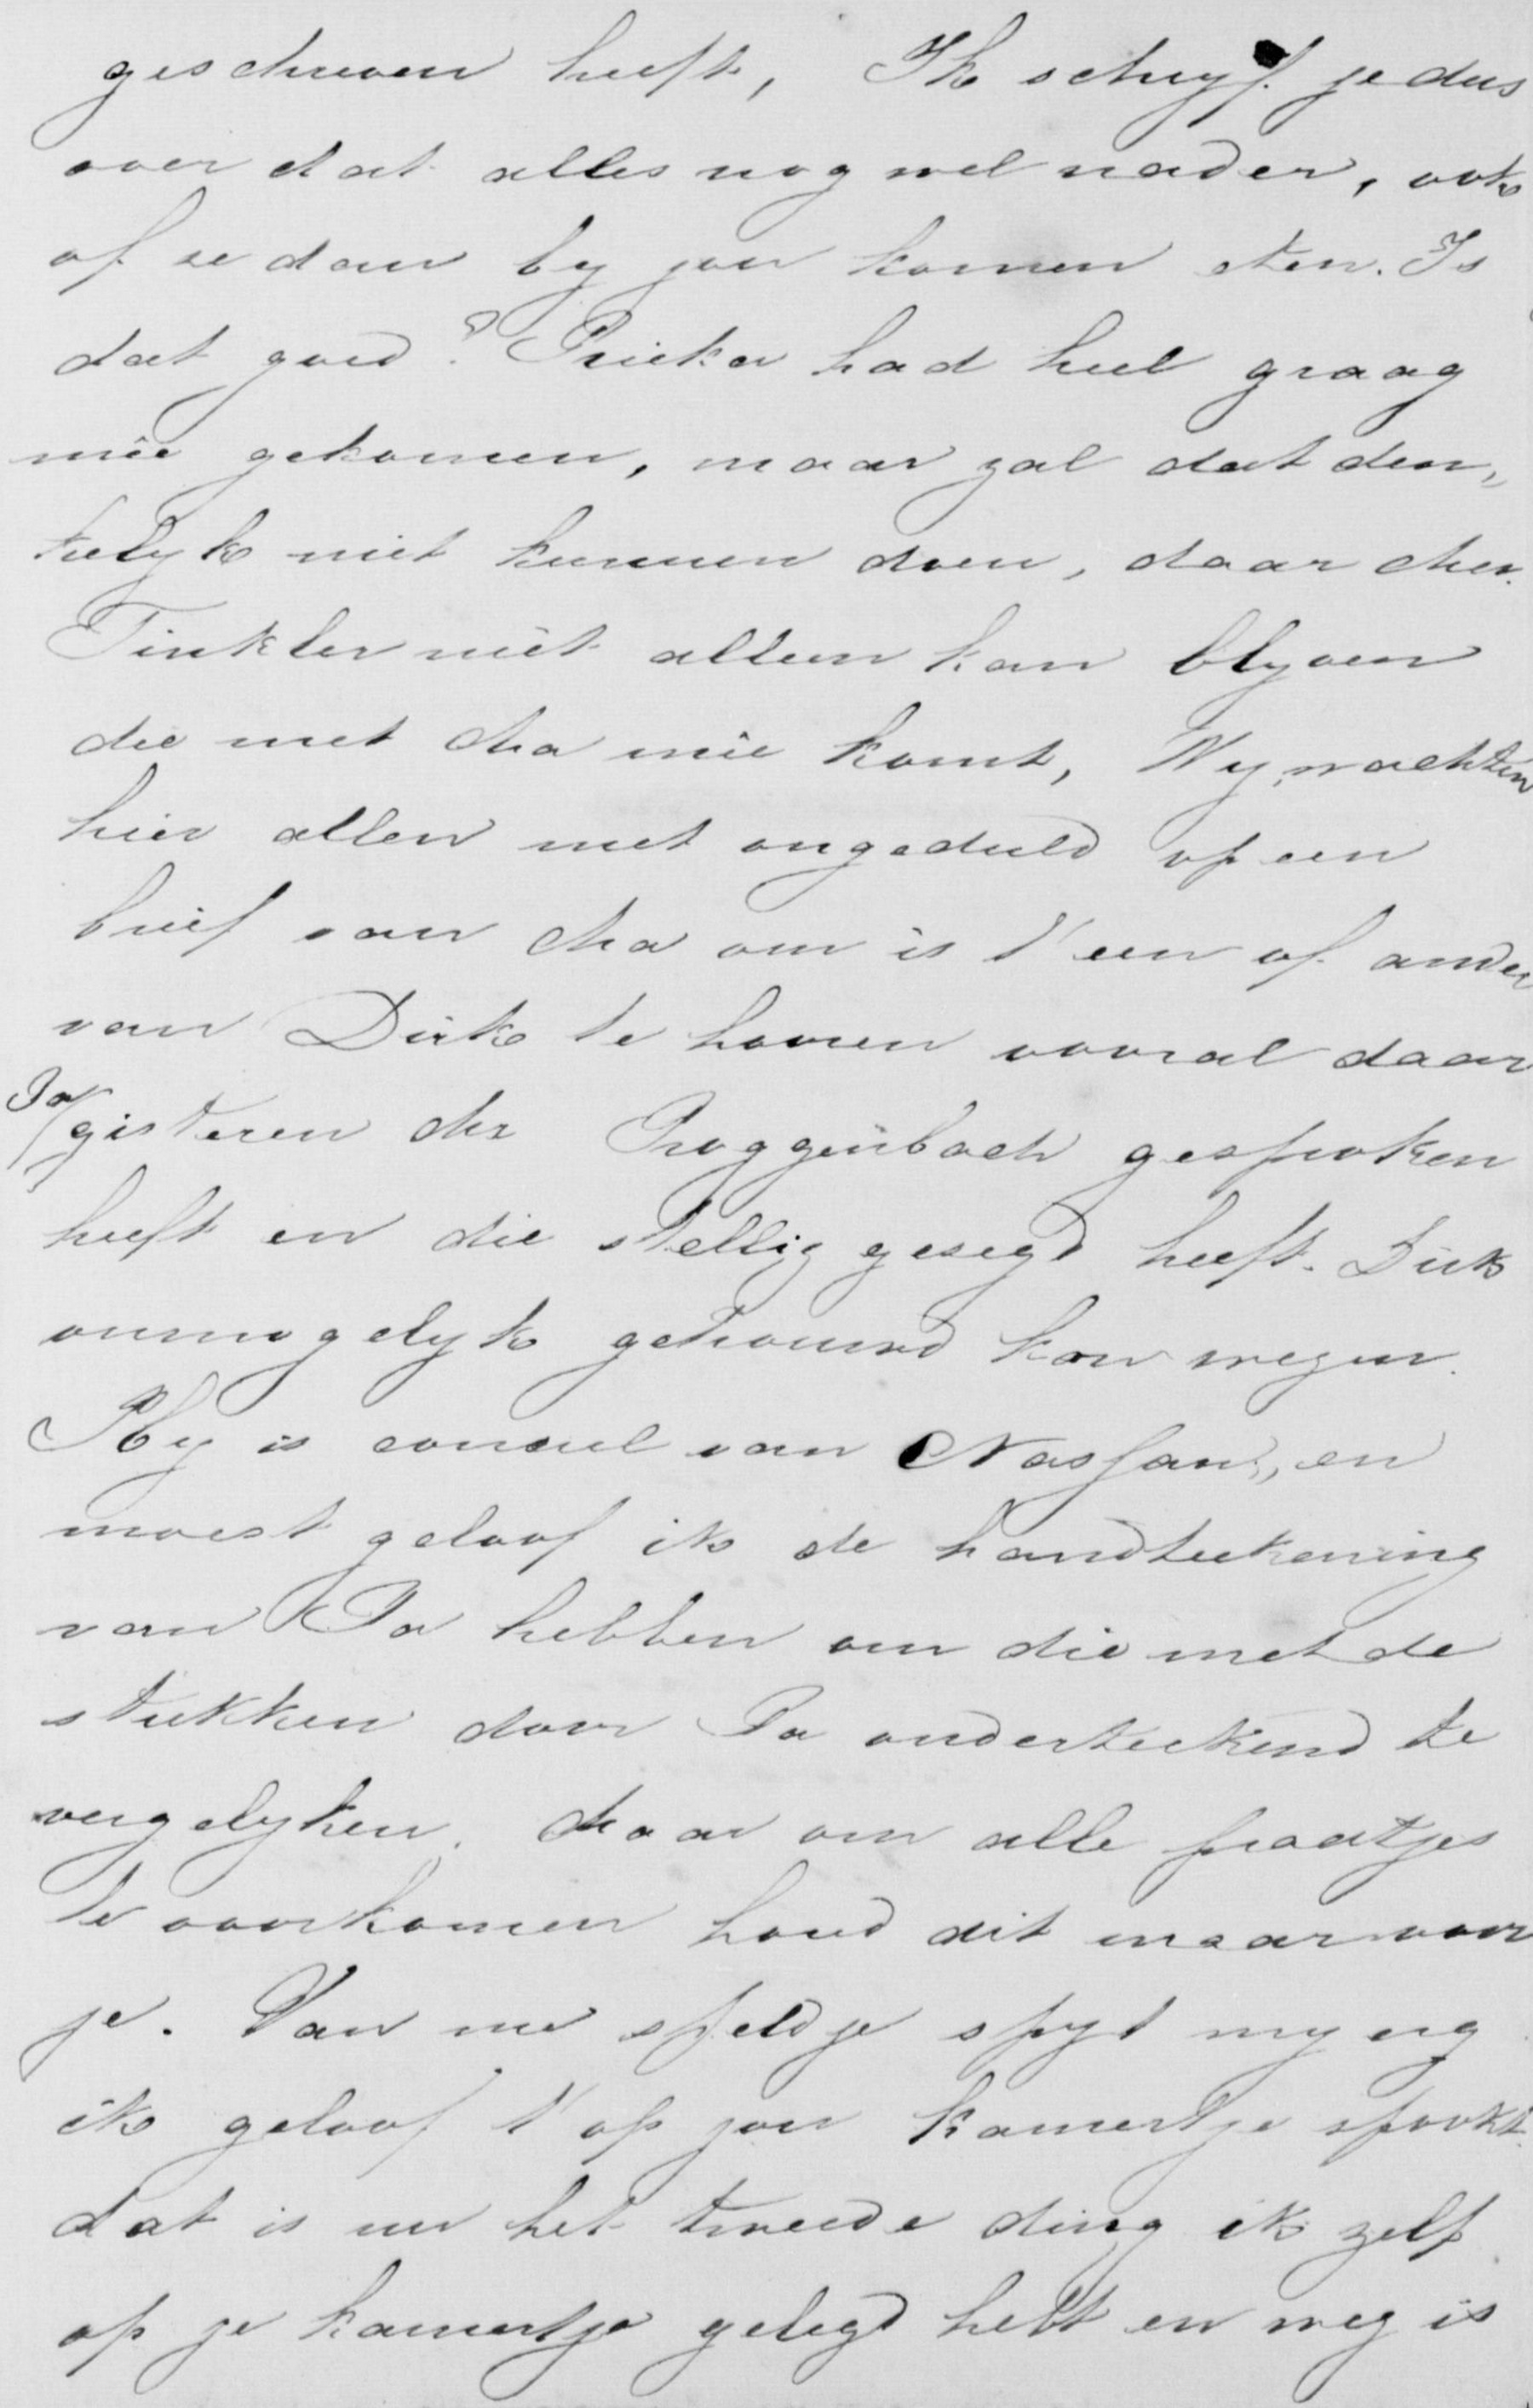 geschreven heeft, Ik schryf je dus
over dat alles nog wel nader, ook
of ze dan by jou komen eten. Is
dat goed? Pricka had heel graag
mêe gekomen, maar zal dat den„
kelyk niet kunnen doen, daar Mev.
Tinkler niet alleen kan blyven
die met Ma mêe komt, Wy wachten
hier allen met ongeduld op een
brief van Ma om is t' een of ander
van Dirk te hooren vooral daar
Pa gisteren Mr Roggenbach gesproken
heeft en die stellig gezegd heeft Dirk
onmogelyk getrouwd kan wezen.
Hy is consul van Nassau, en
moest geloof ik de handteekening
van Pa hebben om die met de
stukken door Pa onderteekend te
vergelyken. Maar om alle praatjes
te voorkomen houd dit maar voor
je. Van me speldje spyt my erg
ik geloof t' op jou kamertje spookt
dat is nu het tweede ding ik zelf
op je kamertje gelegd hebt en weg is